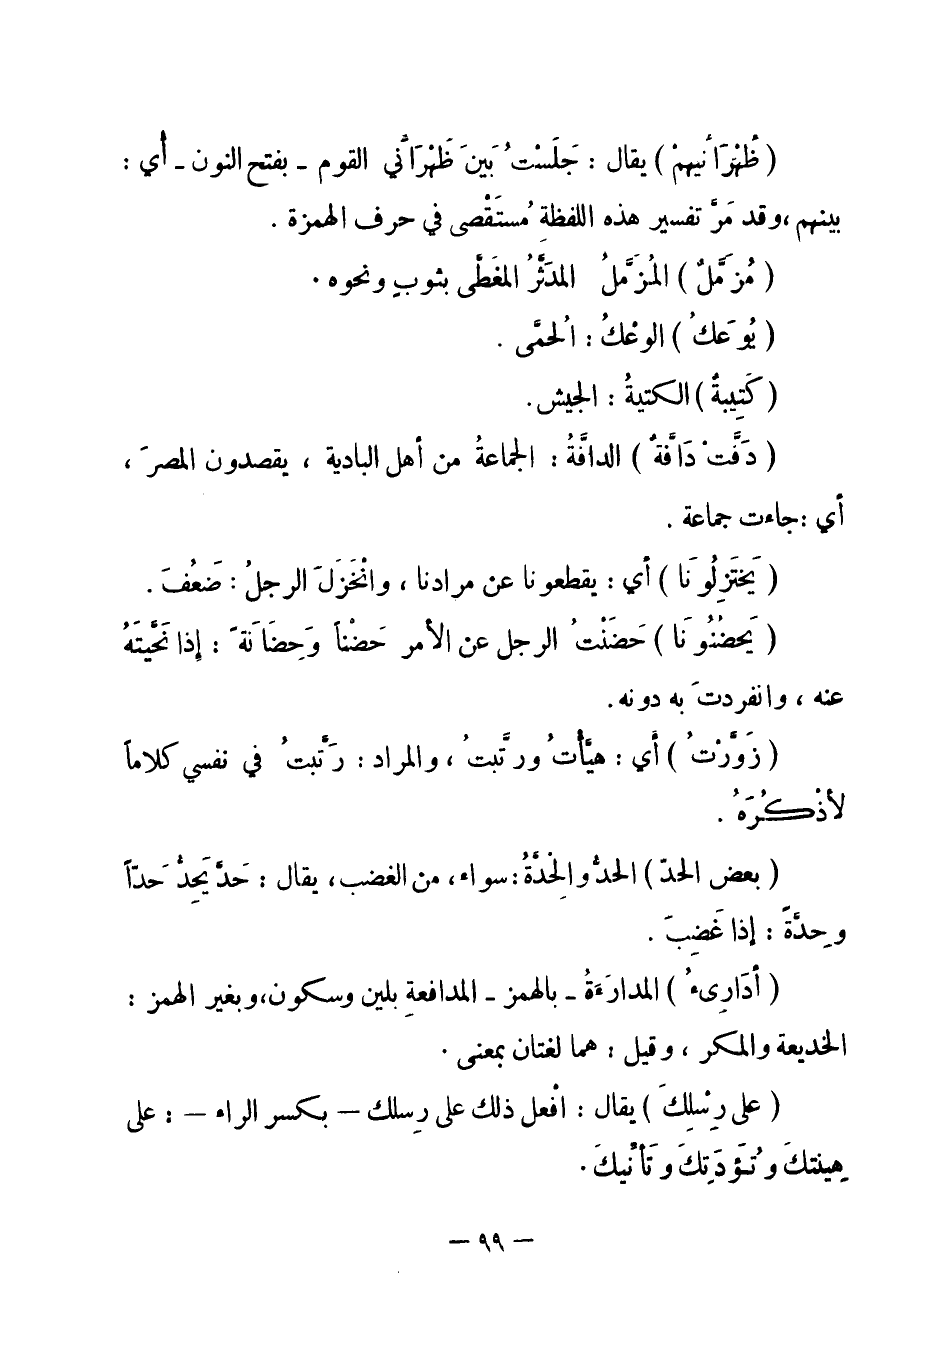 ( ظَهْرَانَيهِمْ ) يقال : جَلَسْتُ بَينَ ظَهْرَانَي القوم ـ بفتح النون ـ أي :
بينهم ، وقد مَرَّ تفسير هذه اللفظةِ مُستَقْصى في حرف الهمزة .
( مُزَمَّلٌ ) المُزَمَّلُ المدَثَّرُ المغَطَّى بثوبٍ ونحوه .
( يُوعَكُ ) الوعْكُ : الحُمَّى .
( كَتِيبةٌ ) الكتيبةُ : الجيش .
( دَفَّتْ دَافَّةٌ ) الدافَّةُ : الجماعةُ من أهل البادية ، يقصدون المصرَ ،
أي : جاءت جماعة .
( يَخْتَزِلُونَا ) أي : يقطعونا عن مرادنا ، وانْخَزَلَ الرجلُ : ضَعُفَ .
( يَحضُنُونَا ) حَضَنْتُ الرجل عن الأمر حَضْناً وحِضَانَةً : إذا نَحَّيتَهُ
عنه ، وانفردتَ به دونه .
( زَوَّرْتُ ) أي : هيَّأْتُ ورتَّبتُ ، والمراد : رَتَّبتُ في نفسي كلاماً
لأذْكُرَهُ .
( بعض الحدّ ) الحدُّ والحِدَّةُ : سواء ، من الغضب ، يقال : حَدَّ يَحِدُّ حَدّاً
وحِدَّةً : إذا غَضِبَ .
( أدَارِىءُ ) المدارَءَةُ ـ بالهمز ـ المدافعةِ بلين وسكون ، وبغير الهمز :
الخديعة والمكر ، وقيل : هما لغتان بمعنى .
( على رِسْلِكَ ) يقال : افْعل ذلك على رِسلك — بكسر الراء — : على
هِينتكَ وتُؤَدَتِكَ وتَأَنِّيكَ .
— ٩٩ —